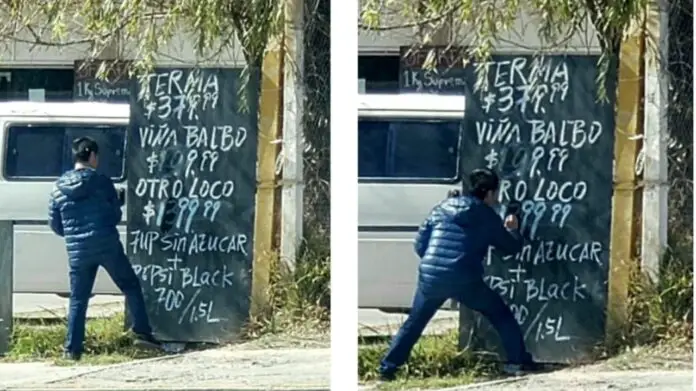 TERMA
$379.99
VIÑA BALBO
$ 9.99
OTRO LOCO
$1399⁹⁹
7UP Sin AZUCAR
+
PEPSI BLACK
700/1.5L
1Kg Suprem
TERMA
$379.99
VIÑA BALBO
$ 9.99
OTRO LOCO
99⁹⁹
UP Sin AZUCAR
+
EPSI BLACK
/1.5L